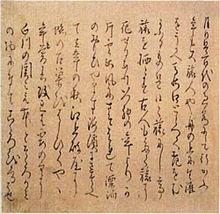 月日は百代の過客にして行かふ
年も又旅人也舟の上に生涯
をうかへ馬の口とらへて老をむ
かふるものは日々旅にして
旅を栖とす古人も多く旅に
死せるあり予もいつれの年よりか
片雲の風にさそはれて漂泊
のおもひやます海浜にさすらへ
て去年の秋江上の破屋に
蜘の古巣をはらひてやゝ
年も暮春立る霞の空に
白川の関こえんとそゝろかみ
の物につきてこゝろをくるはせ